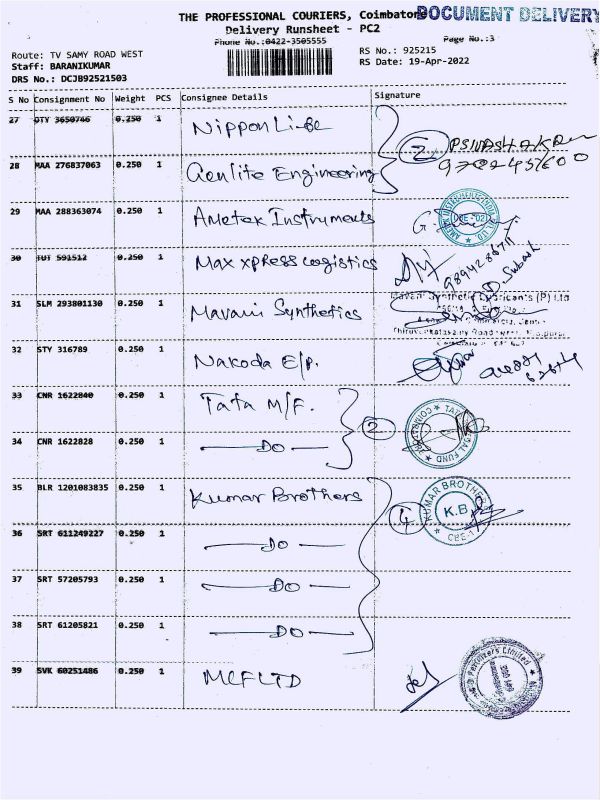 THE PROFESSIONAL COURIERS, Coimbatore
DOCUMENT DELIVERY
Delivery Runsheet - PC2
Phone No.:0422-3505555
Page No.:3
Route: TV SAMY ROAD WEST
RS No.: 925215
Staff: BARANIKUMAR
RS Date: 19-Apr-2022
DRS No.: DCJB92521503
S No Consignment No Weight PCS Consignee Details Signature
27 OTY 3650746 0.250 1 Nippon Life
28 MAA 276837063 0.250 1 Genlite Engineering
2
29 MAA 288363074 0.250 1 Ametek Instruments
CBE - 02
30 TUT 591512 0.250 1 Max xpress Logistics
31 SLM 293801130 0.250 1 Mavani Synthetics
Mavani Synthetic Lubricants (P) Ltd
32 STY 316789 0.250 1 Nakoda E/p.
33 CNR 1622840 0.250 1 Tata M/F.
34 CNR 1622828 0.250 1 —DO—
2
35 BLR 1201083835 0.250 1 Kumar Brothers
KUMAR BROTHERS
K.B
36 SRT 611249227 0.250 1 —DO—
4
37 SRT 57205793 0.250 1 —DO—
38 SRT 61205821 0.250 1 —DO—
39 SVK 60251486 0.250 1 MCFLTD